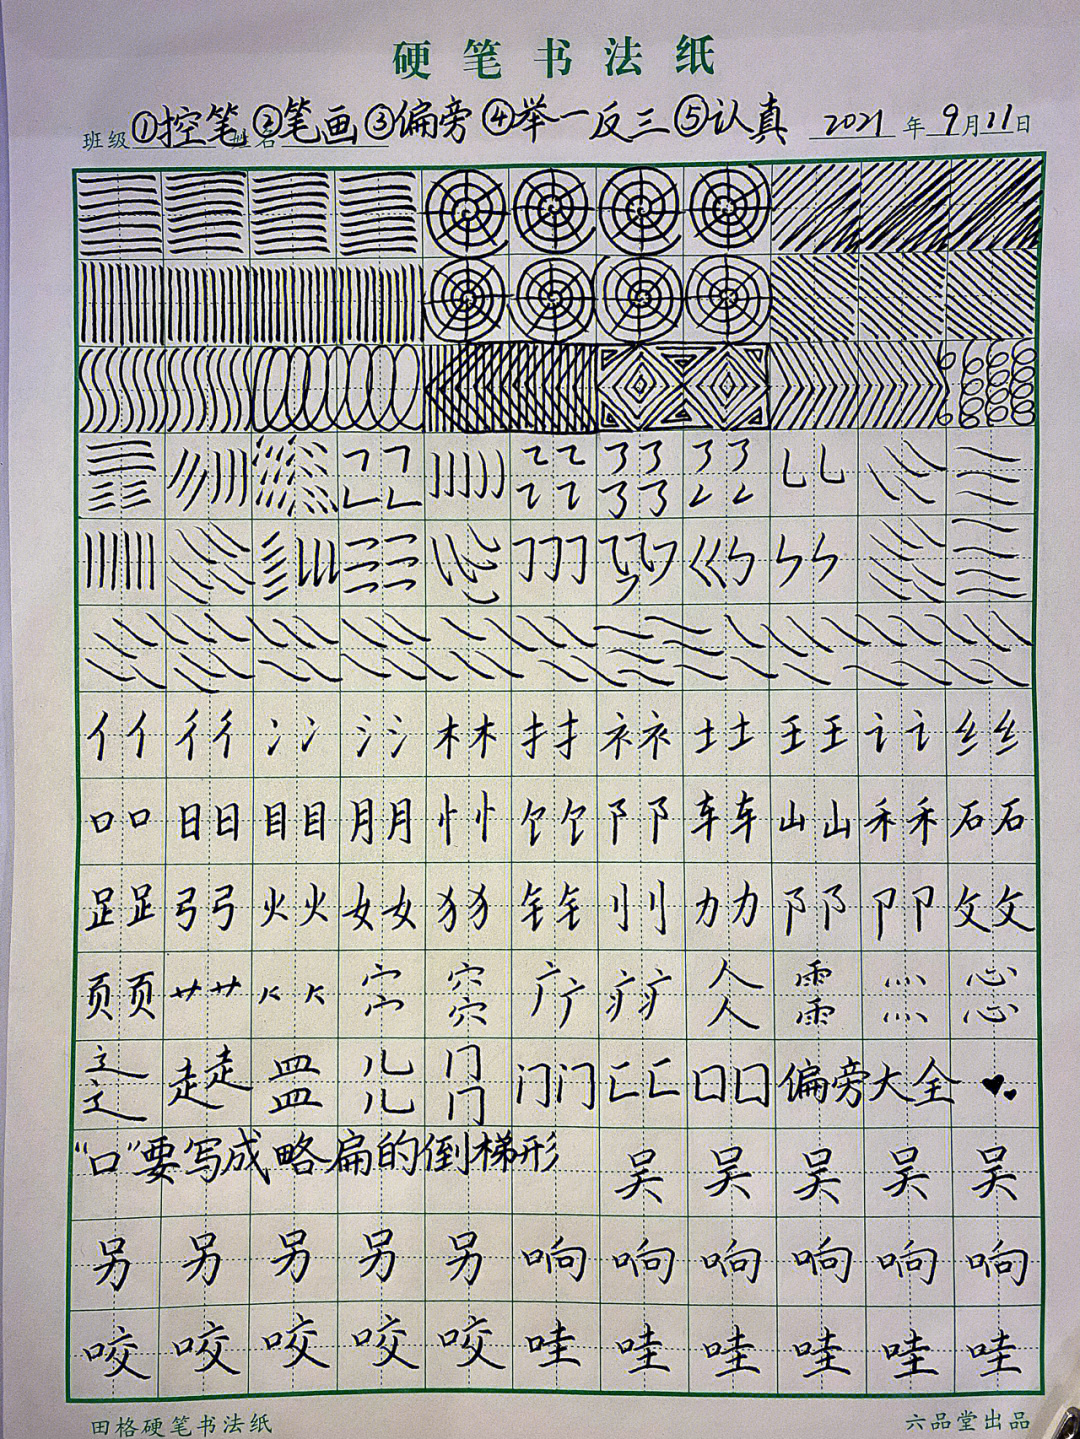 硬笔书法纸
班级 ①控笔 姓名 ②笔画 ③偏旁 ④举一反三 ⑤认真 2021 年 9 月 11 日
亻亻 彳彳 冫冫 氵氵 木木 扌扌 衤衤 土土 王王 讠讠 纟纟
口口 日日 目目 月月 忄忄 饣饣 阝阝 车车 山山 禾禾 石石
𧾷𧾷 弓弓 火火 女女 犭犭 钅钅 刂刂 力力 阝阝 卩卩 攵攵
页页 艹艹 宀宀 穴穴 广广 疒疒 人人 雨雨 灬灬 心心
辶辶 走走 皿皿 儿儿 冂冂 门门 匚匚 囗囗 偏旁大全 ♥♥
“口”要写成略扁的倒梯形 吴 吴 吴 吴 吴
另 另 另 另 另 响 响 响 响 响 响
咬 咬 咬 咬 咬 哇 哇 哇 哇 哇 哇
田格硬笔书法纸 六品堂出品